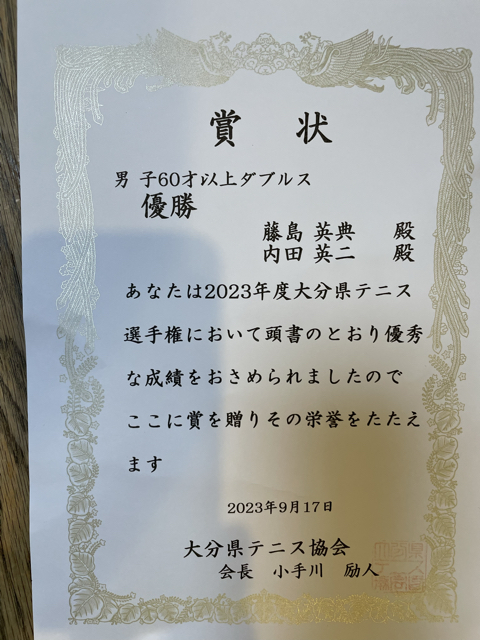 賞 状
男 子60才以上ダブルス
優勝
藤島 英典 殿
内田 英二 殿
あなたは2023年度大分県テニス
選手権において頭書のとおり優秀
な成績をおさめられましたので
ここに賞を贈りその栄誉をたたえ
ます
2023年9月17日
大分県テニス協会
会長 小手川 励人